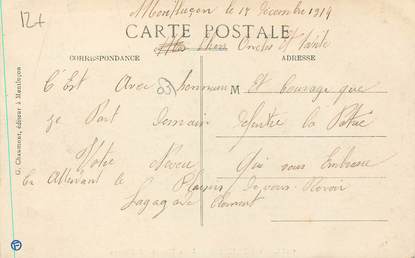 12+
Montluçon le 15 Décembre 1914
CARTE POSTALE
Mes Chers Oncles Et Tante
CORRESPONDANCE
ADRESSE
C'Est Avec honneur M Et Courage que
je Part Demain défendre la Patrie
Votre Neveu Qui vous Embrasse
En Attendant le Plaisir De vous Revoir
Clément
G. Chaumont, éditeur à Montluçon